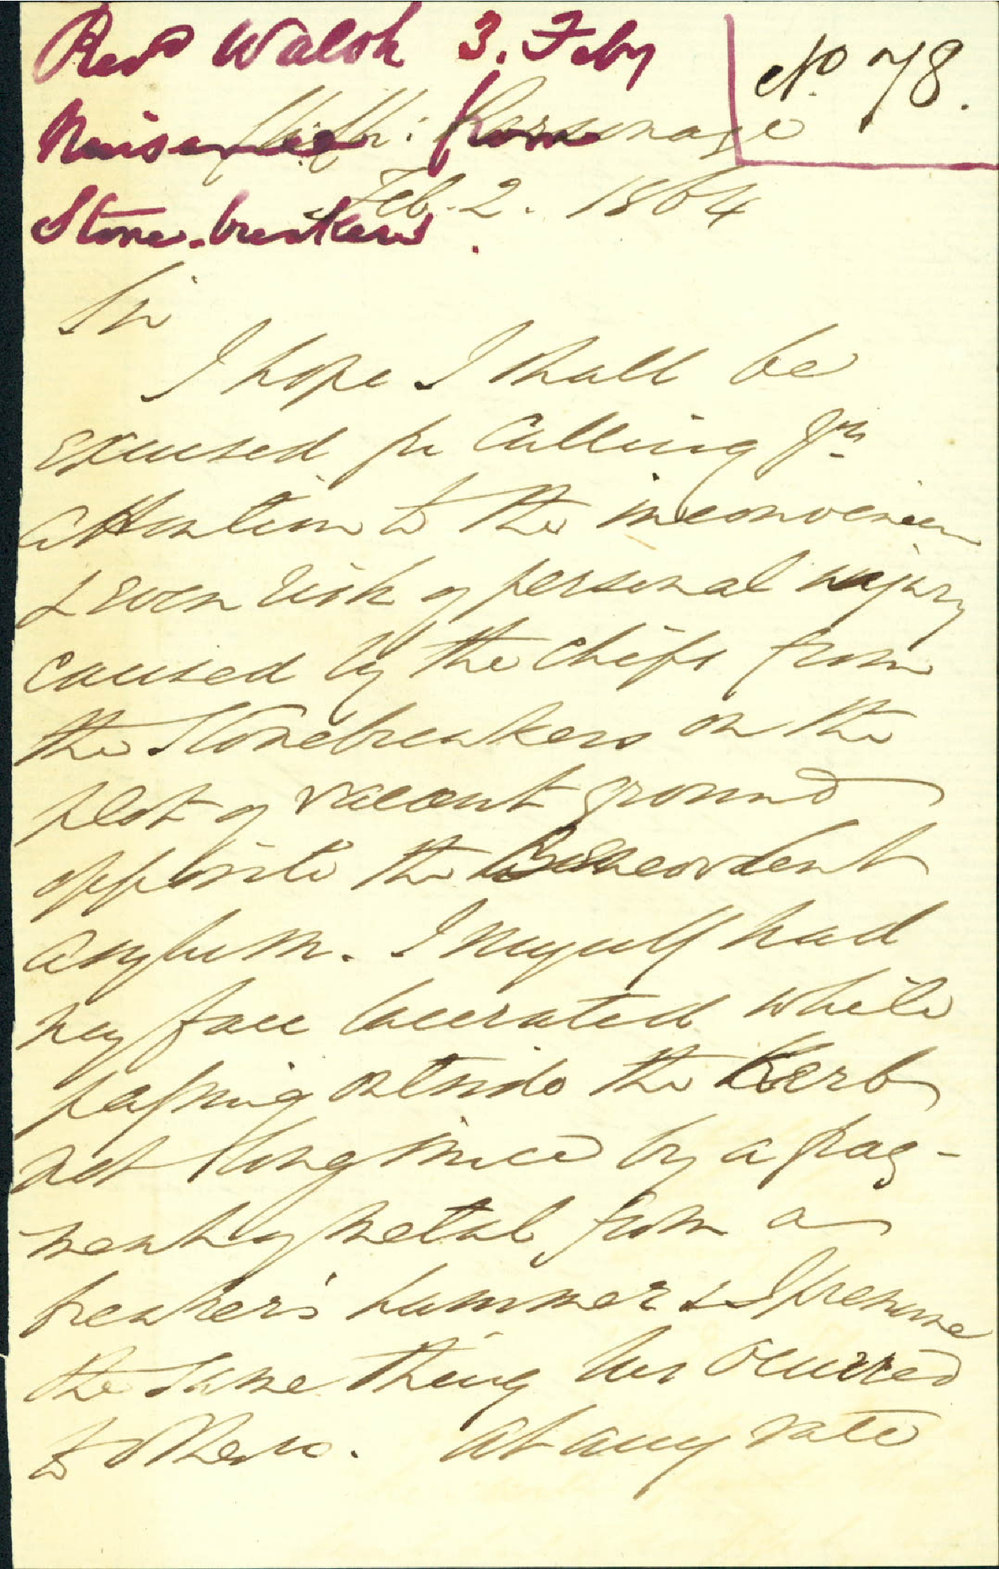 Revd Walsh 3. Feby
No. 78.
Nuisance from
Parsonage
Stone-breakers.
Feb. 2. 1864
Sir
I hope I shall be
excused for calling yr
attention to the inconvenience
& even risk of personal injury
caused by the chips from
the Stonebreakers on the
plot of vacant ground
opposite the Benevolent
asylum. I myself had
my face lacerated while
passing outside the Kerb
not long since by a frag-
ment of metal from a
breaker's hammer & I presume
the same thing has occurred
to others. At any rate